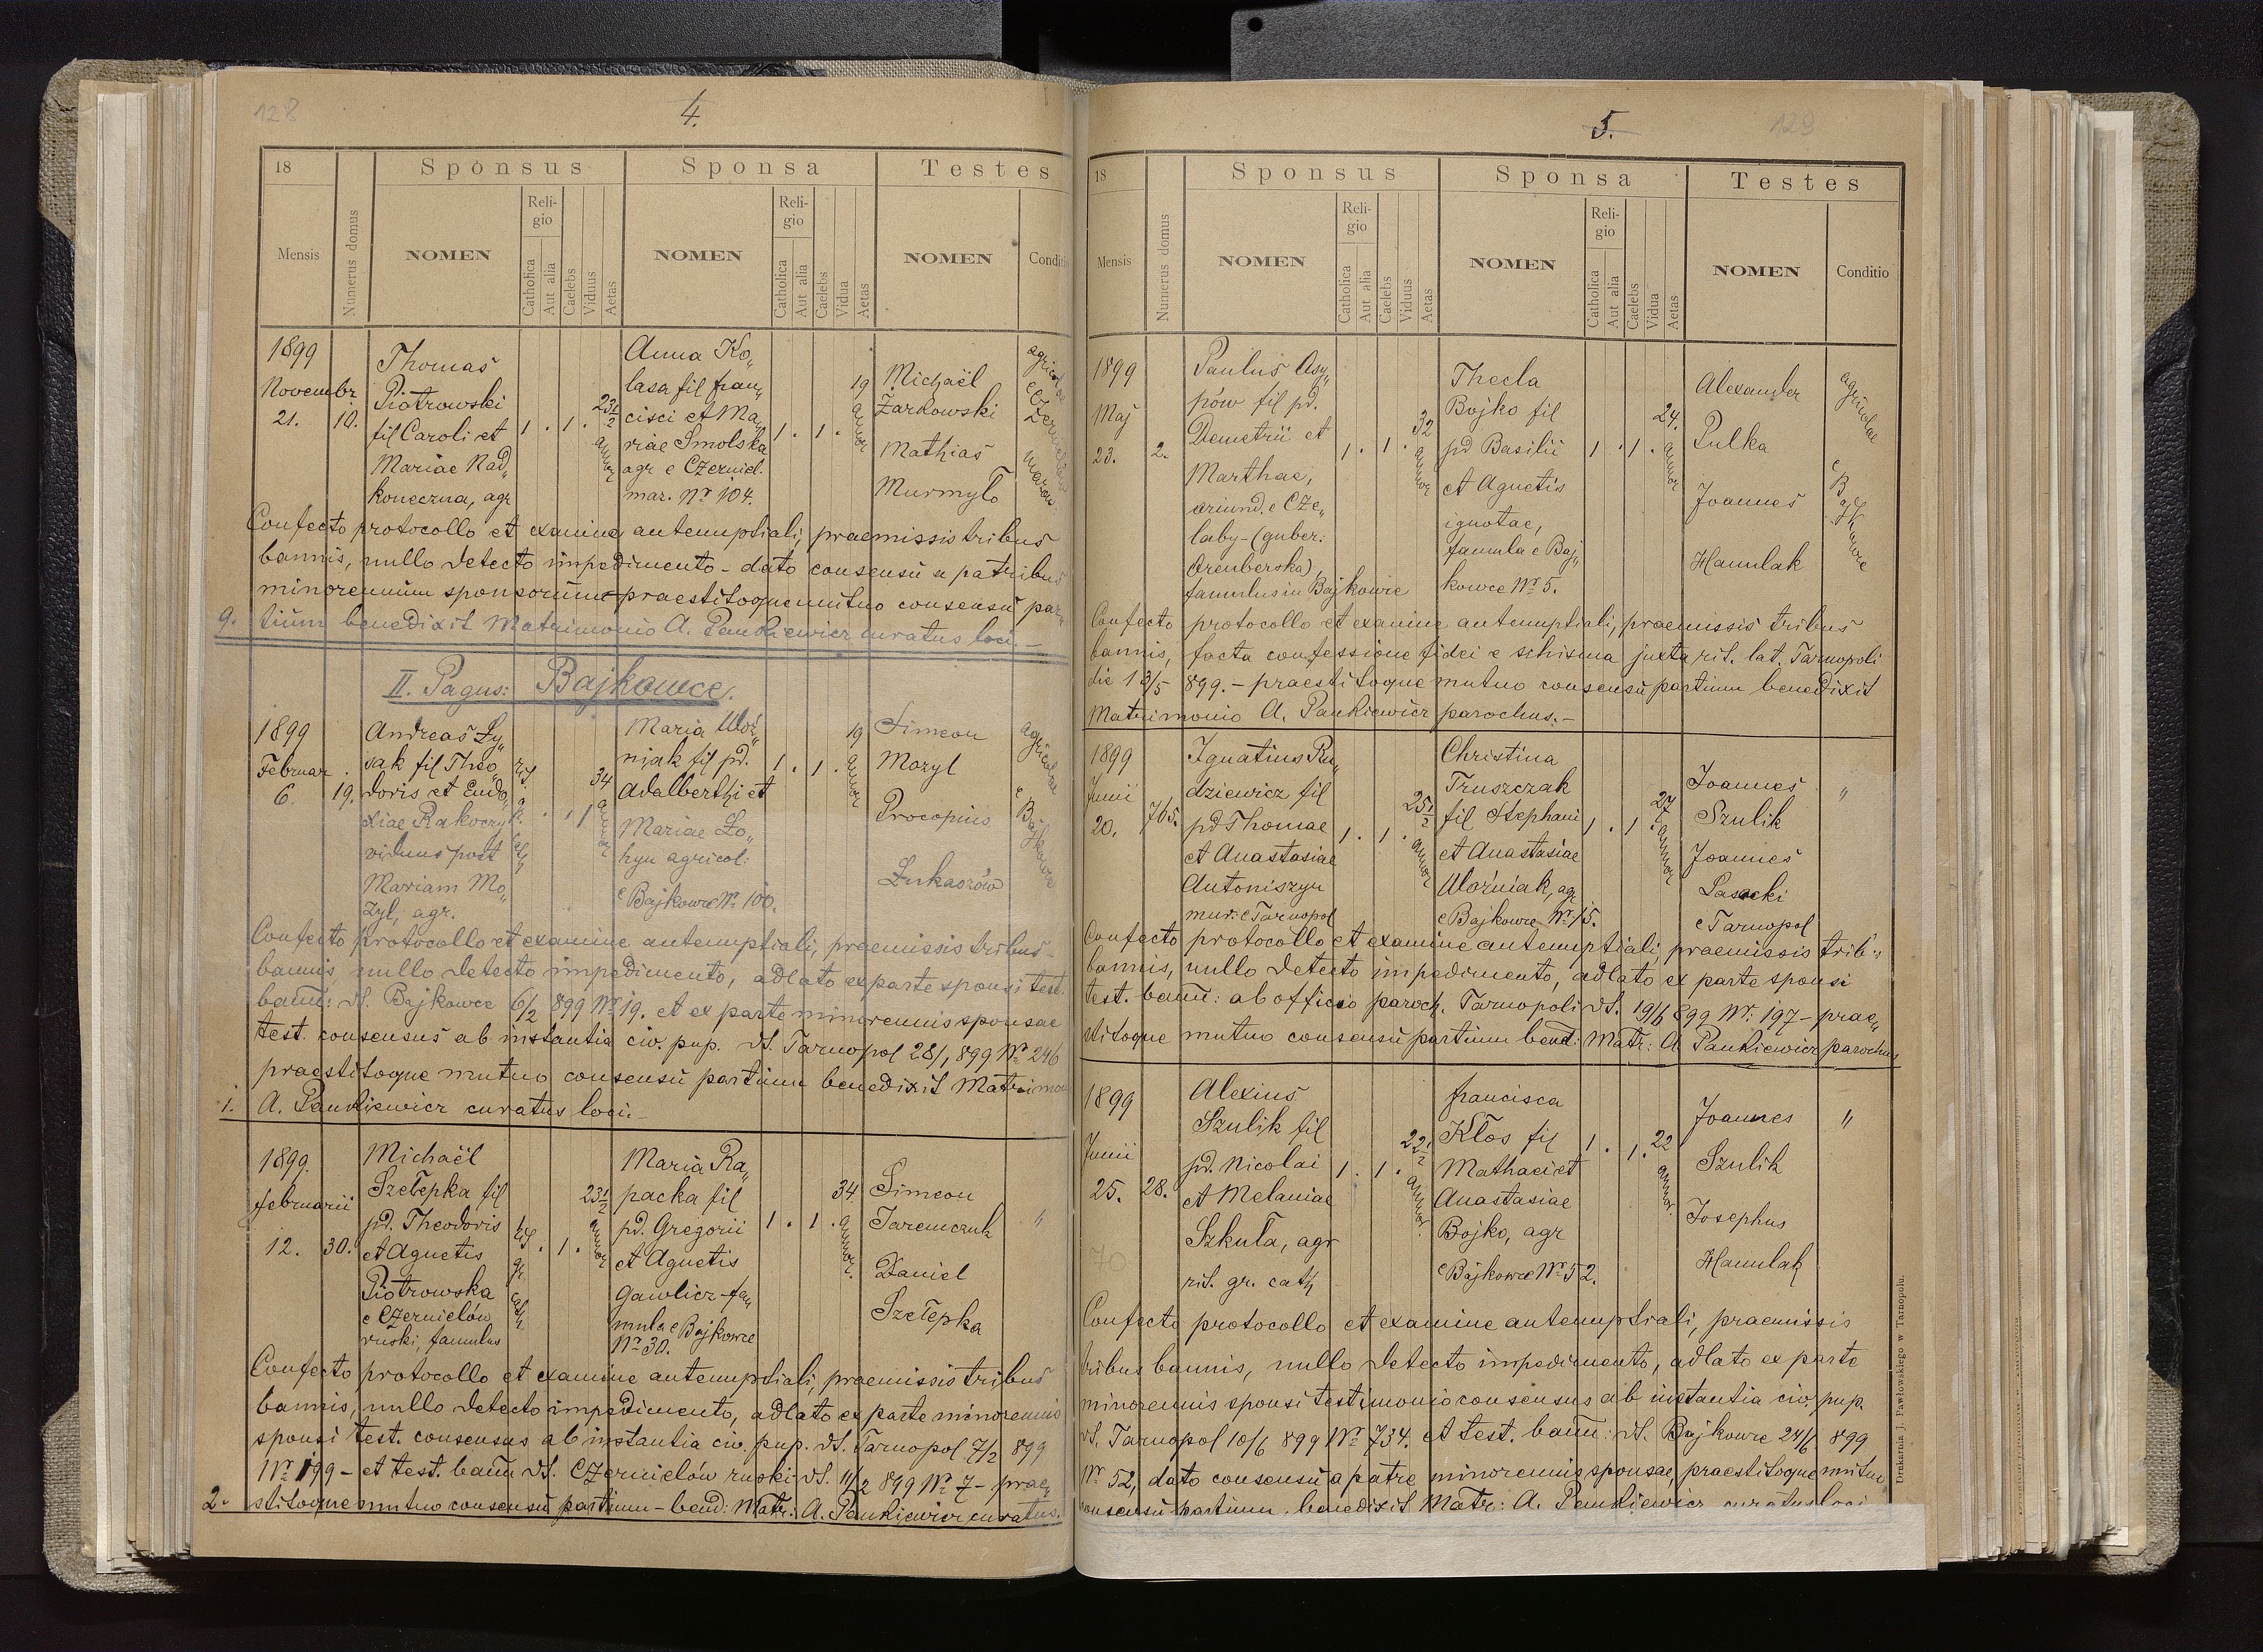 128
4.
18
Mensis
Numerus domus
Sponsus
NOMEN
Reli-
gio
Catholica
Aut alia
Caelebs
Viduus
Aetas
Sponsa
NOMEN
Reli-
gio
Catholica
Aut alia
Caelebs
Vidua
Aetas
Testes
NOMEN
Conditio
1899
Novembr.
21.
10.
Thomas
Piotrowski
fil Caroli et
Mariae Nad„
koneczna, agr
1 . 1 .
23 1/2
annor
Anna Ko„
lasa fil fran„
cisci et Ma„
riae Smolska
agr e Czerniel.
mar. Nr 104.
1 . 1 .
19
annor
Michaël
Żarkowski
Mathias
Murmyło
agricolae
Confecto protocollo et examine antenuptiali, praemissis tribus
bannis, nullo detecto impedimento - dato consensu a patribus
minorennium sponsorum praestitoque mutuo consensu par„
9. tium benedixit Matrimonio A. Pankiewicz curatus loci -
II. Pagus: Bajkowce.
1899
Februar.
6.
19.
Andreas Ły„
sak fil Theo„
doris et Eudo„
xiae Rakoczy
viduus post
Mariam Mo„
zyl, agr.
rit.
. 1 1
34
annor
Maria Woź„
niak fil pd.
Adalberthi et
Mariae Ło„
hyn agricol:
e Bajkowce Nr 100.
1 . 1 .
19
annor
Simeon
Mozyl
Procopius
Łukaszów
agricolae
e Bajkowce
Confecto protocollo et examine antenuptiali, praemissis tribus
bannis nullo detecto impedimento, adlato ex parte sponsi test.
bann: dt. Bajkowce 6/2 899 Nr 19. et ex parte minorennis sponsae
test. consensus ab instantia civ. pup. dt. Tarnopol 28/1 899 Nr 246
praestitoque mutuo consensu partium benedixit Matrimon
1. A. Pankiewicz curatus loci -
1899.
februarii
12.
30.
Michaël
Szełepka fil
pd. Theodoris
et Agnetis
Piotrowska
e Czernielów
ruski, famulus
rit.
gr
cath
. 1 .
23 1/2
annor
Maria Ra„
packa fil
pd. Gregorii
et Agnetis
Gawlicz - fa„
mula e Bajkowce
Nr 30.
1 . 1 .
34
annor.
Simeon
Jaremczuk
Daniel
Szełepka
„
Confecto protocollo et examine antenuptiali, praemissis tribus
bannis, nullo detecto impedimento, adlato ex parte minorennis
sponsi test. consensus ab instantia civ. pup. dt. Tarnopol 7/2 899
Nr 199 - et test. bann dt. Czernielów ruski dt. 11/2 899 Nr 7 - prae„
2. stitoque mutuo consensu partium - bened: Matr: A. Pankiewicz curatus.
129
5.
18
Mensis
Numerus domus
Sponsus
NOMEN
Reli-
gio
Catholica
Aut alia
Caelebs
Viduus
Aetas
Sponsa
NOMEN
Reli-
gio
Catholica
Aut alia
Caelebs
Vidua
Aetas
Testes
NOMEN
Conditio
1899
Maj
23.
2.
Paulus Osy„
pów fil pd.
Demetrii et
Marthae,
oriund. e Cze„
laby - (guber:
Orenberska),
famulus in Bajkowie
1 . 1 .
32
annor
Thecla
Bojko fil
pd Basilii
et Agnetis
ignotae,
famula e Baj„
kowce Nr 5.
1 . 1 .
24.
annor
Alexander
Pulka
Joannes
Hamulak
agricolae
e Bajkowce
Confecto protocollo et examine antenuptiali, praemissis tribus
bannis, facta confessione fidei e schisma juxta rit. lat. Tarnopoli
die 19/5 899. - praestitoque mutuo consensu partium benedixit
Matrimonio A. Pankiewicz parochus. -
1899
Junii
20.
705.
Ignatius Ru„
dziewicz fil
pd Thomae
et Anastasiae
Antoniszyn
mur: e Tarnopol
1 . 1 .
25 1/2
annor
Christina
Truszczak
fil Stephani
et Anastasiae
Woźniak, agr
e Bajkowce Nr 15.
1 . 1 .
27
annor
Joannes
Szulik
Joannes
Lasocki
e Tarnopol
„
Confecto protocollo et examine antenuptiali, praemissis trib„
bannis, nullo detecto impedimento, adlato ex parte sponsi
test. bann: ab officio paroch. Tarnopoli dt. 19/6 899 Nr: 197 - prae„
stitoque mutuo consensu partium bend: Matr: A Pankiewicz parochus
1899
Junii
25.
28.
Alexius
Szulik fil
pd. Nicolai
et Melaniae
Szkuła, agr
rit. gr. cath
1 . 1 .
22 1/2
annor.
francisca
Kłos fil
Mathaei et
Anastasiae
Bojko, agr
e Bajkowce Nr 52.
1 . 1 .
22
annor.
Joannes
Szulik
Josephus
Hamulak
„
70
Confecto protocollo et examine antenuptiali, praemissis
tribus bannis, nullo detecto impedimento, adlato ex parte
minorennis sponsi testimonio consensus ab instantia civ. pup.
dt. Tarnopol 10/6 899 Nr 734. et test. bann: dt. Bajkowce 24/6 899
Nr 52, dato consensu a patre minorennis sponsae, praestitoque mutuo
consensu partium benedixit Matr: A. Pankiewicz curatus loci
Drukarnia J. Pawłowskiego w Tarnopolu.